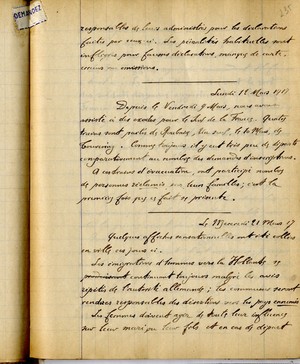 DEMANDEZ
responsables de leurs administrés pour les déclarations
faites par ceux-ci. Les pénalités habituelles sont
infligées pour fausses déclarations, manque de
ou omissions.
Lundi 12 Mars 1917
Depuis le Vendredi 9 Mars, nous avons
assisté à des exodes pour le Sud de la France. Quatre
trains sont partis de Roubaix, un seul, le 10 Mars, de
Tourcoing. Comme toujours il y eut très peu de départs
comparativement au nombre des demandes d'inscriptions.
A ces trains d'évacuation, ont participé nombre
de personnes réclamées par leurs familles; c'est la
première fois que ce fait se présente.
Le Mercredi 21 Mars 17
Quelques affiches sensationnelles ont été collées
en ville ces jours-ci.
Les émigrations d'hommes vers la Hollande se
continuent toujours malgré les avis
répétés de l'autorité allemande; les communes seront
rendues responsables des désertions vers les pays ennemis
Les femmes doivent user de toute leur influence
sur leur mari, leurs fils et en cas de départ